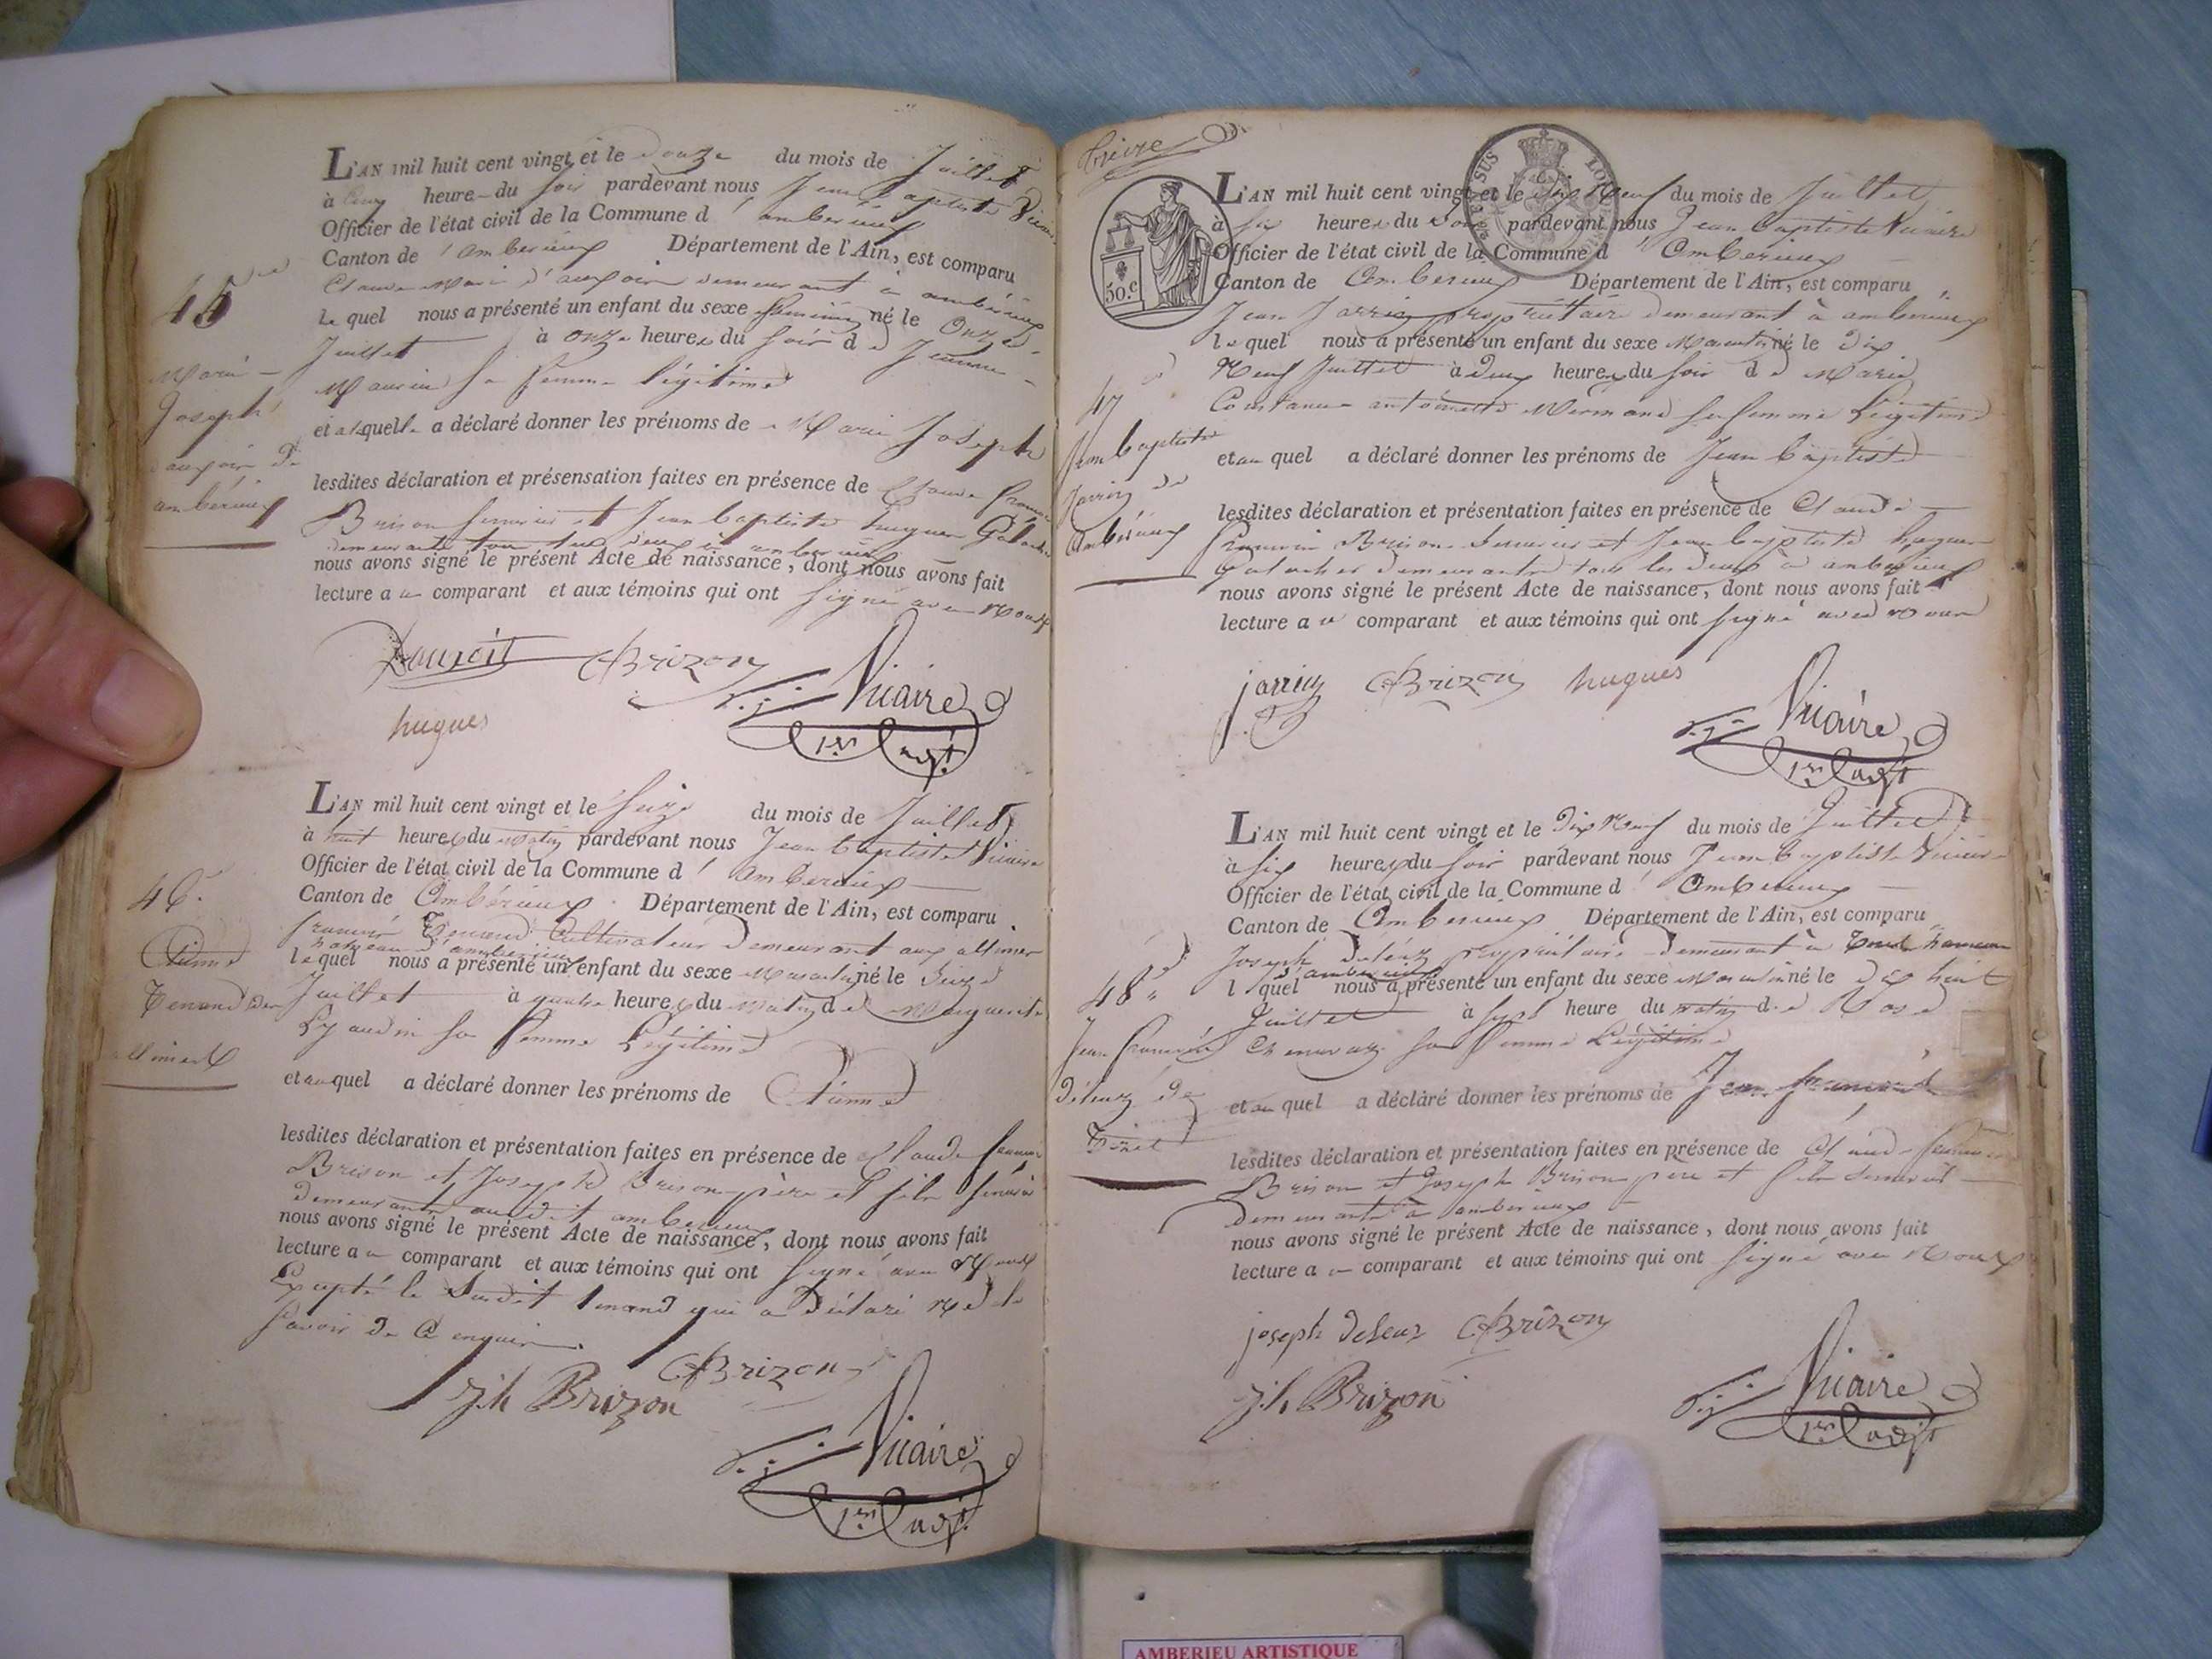 L'AN mil huit cent vingt et le douze du mois de Juillet
à cinq heure du soir pardevant nous Jean Baptiste Vicaire
Officier de l'état civil de la Commune d' amberieux
Canton de amberieux Département de l'Ain, est comparu
Claude Marie demeurant à ambérieux
45
le quel nous a présenté un enfant du sexe feminin né le Onze
Juillet à onze heures du soir de Jeanne
femme légitime
Marie
Joseph
de
ambérieux
et a laquelle a déclaré donner les prénoms de Marie Joseph
lesdites déclaration et présensation faites en présence de Claude françois
Brison et Jean baptiste hugues
demeurants tous les deux à amberieux
nous avons signé le présent Acte de naissance, dont nous avons fait
lecture au comparant et aux témoins qui ont signé avec Nous
CfBrizon
Vicaire
hugues
1er adjt
L'AN mil huit cent vingt et le seize du mois de Juillet
à huit heures du matin pardevant nous Jean Baptiste Vicaire
Officier de l'état civil de la Commune d' amberieux
Canton de Ambérieux Département de l'Ain, est comparu
46
françois Tenand Cultivateur demeurant aux allimes
hameau d'amberieux
le quel nous a présenté un enfant du sexe Masculin né le Seize
Juillet à quatre heures du matin de Marguerite
sa femme Légitime
Tenand des
et au quel a déclaré donner les prénoms de
lesdites déclaration et présentation faites en présence de Claude françois
Brison et Joseph Brison père et fils
demeurants audit amberieux
nous avons signé le présent Acte de naissance, dont nous avons fait
lecture au comparant et aux témoins qui ont signé avec Nous
Excepté le Susdit tenand qui a déclaré ne le
savoir de Ce enquis
CfBrizon
Jh Brizon
Vicaire
1er adjt
50.c
L'AN mil huit cent vingt et le dix Neuf du mois de Juillet
à six heures du soir pardevant nous Jean Baptiste Vicaire
Officier de l'état civil de la Commune d' Amberieux
Canton de Amberieux Département de l'Ain, est comparu
Jean Jarrin propriétaire demeurant à amberieux
le quel nous a présenté un enfant du sexe Masculin né le Dix
Neuf Juillet à deux heures du soir de Marie
Constance antoinette sa femme Légitime
47
Jean baptiste
Jarrin de
Ambérieux
et au quel a déclaré donner les prénoms de Jean baptiste
lesdites déclaration et présentation faites en présence de Claude
françois Brison et Jean baptiste hugues
demeurants tous les deux à amberieux
nous avons signé le présent Acte de naissance, dont nous avons fait
lecture au comparant et aux témoins qui ont signé avec nous
jarrin CfBrizon hugues
Vicaire
1er adjt
L'AN mil huit cent vingt et le dix Neuf du mois de Juillet
à six heures du soir pardevant nous Jean baptiste Vicaire
Officier de l'état civil de la Commune d' Amberieux
Canton de Amberieux Département de l'Ain, est comparu
Joseph propriétaire demeurant à hameau
d'amberieux
l quel nous a présenté un enfant du sexe Masculin né le dix huit
48
Juillet à sept heure du matin de Rose
sa femme Légitime
Jean françois
de
et au quel a déclaré donner les prénoms de Jean françois
lesdites déclaration et présentation faites en présence de Claude françois
Brison et Joseph Brison père et fils
demeurants à amberieux
nous avons signé le présent Acte de naissance, dont nous avons fait
lecture au comparant et aux témoins qui ont signé avec Nous
joseph CfBrizon
Jh Brizon
Vicaire
1er adjt
AMBERIEU ARTISTIQUE